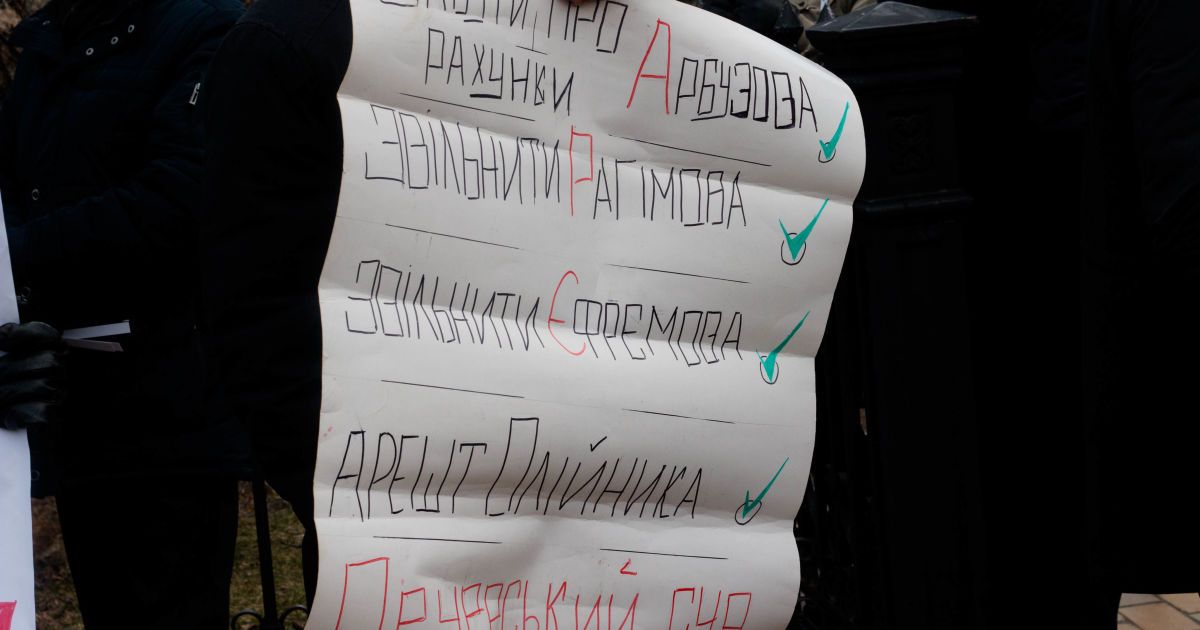 ПРО
РАХУНКИ АРБУЗОВА
ЗВІЛЬНИТИ РАГІМОВА
ЗВІЛЬНИТИ ЄФРЕМОВА
АРЕШТ ОЛІЙНИКА
ПЕЧЕРСЬКИЙ СУД